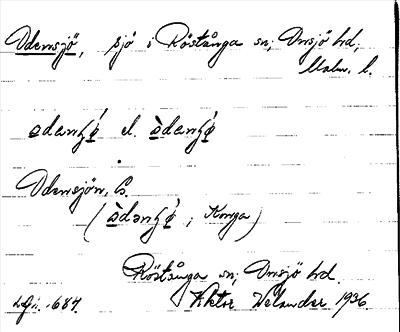 Odensjö, sjö i Röstånga sn, Onsjö hd,
Malm. l.
ɷdənʃǿ el. ɷ̀dənʃǿ
Odensjön, S.
(ɷ̀dənʃǿ, Konga)
Röstånga sn, Onsjö hd
Viktor Welander 1936.